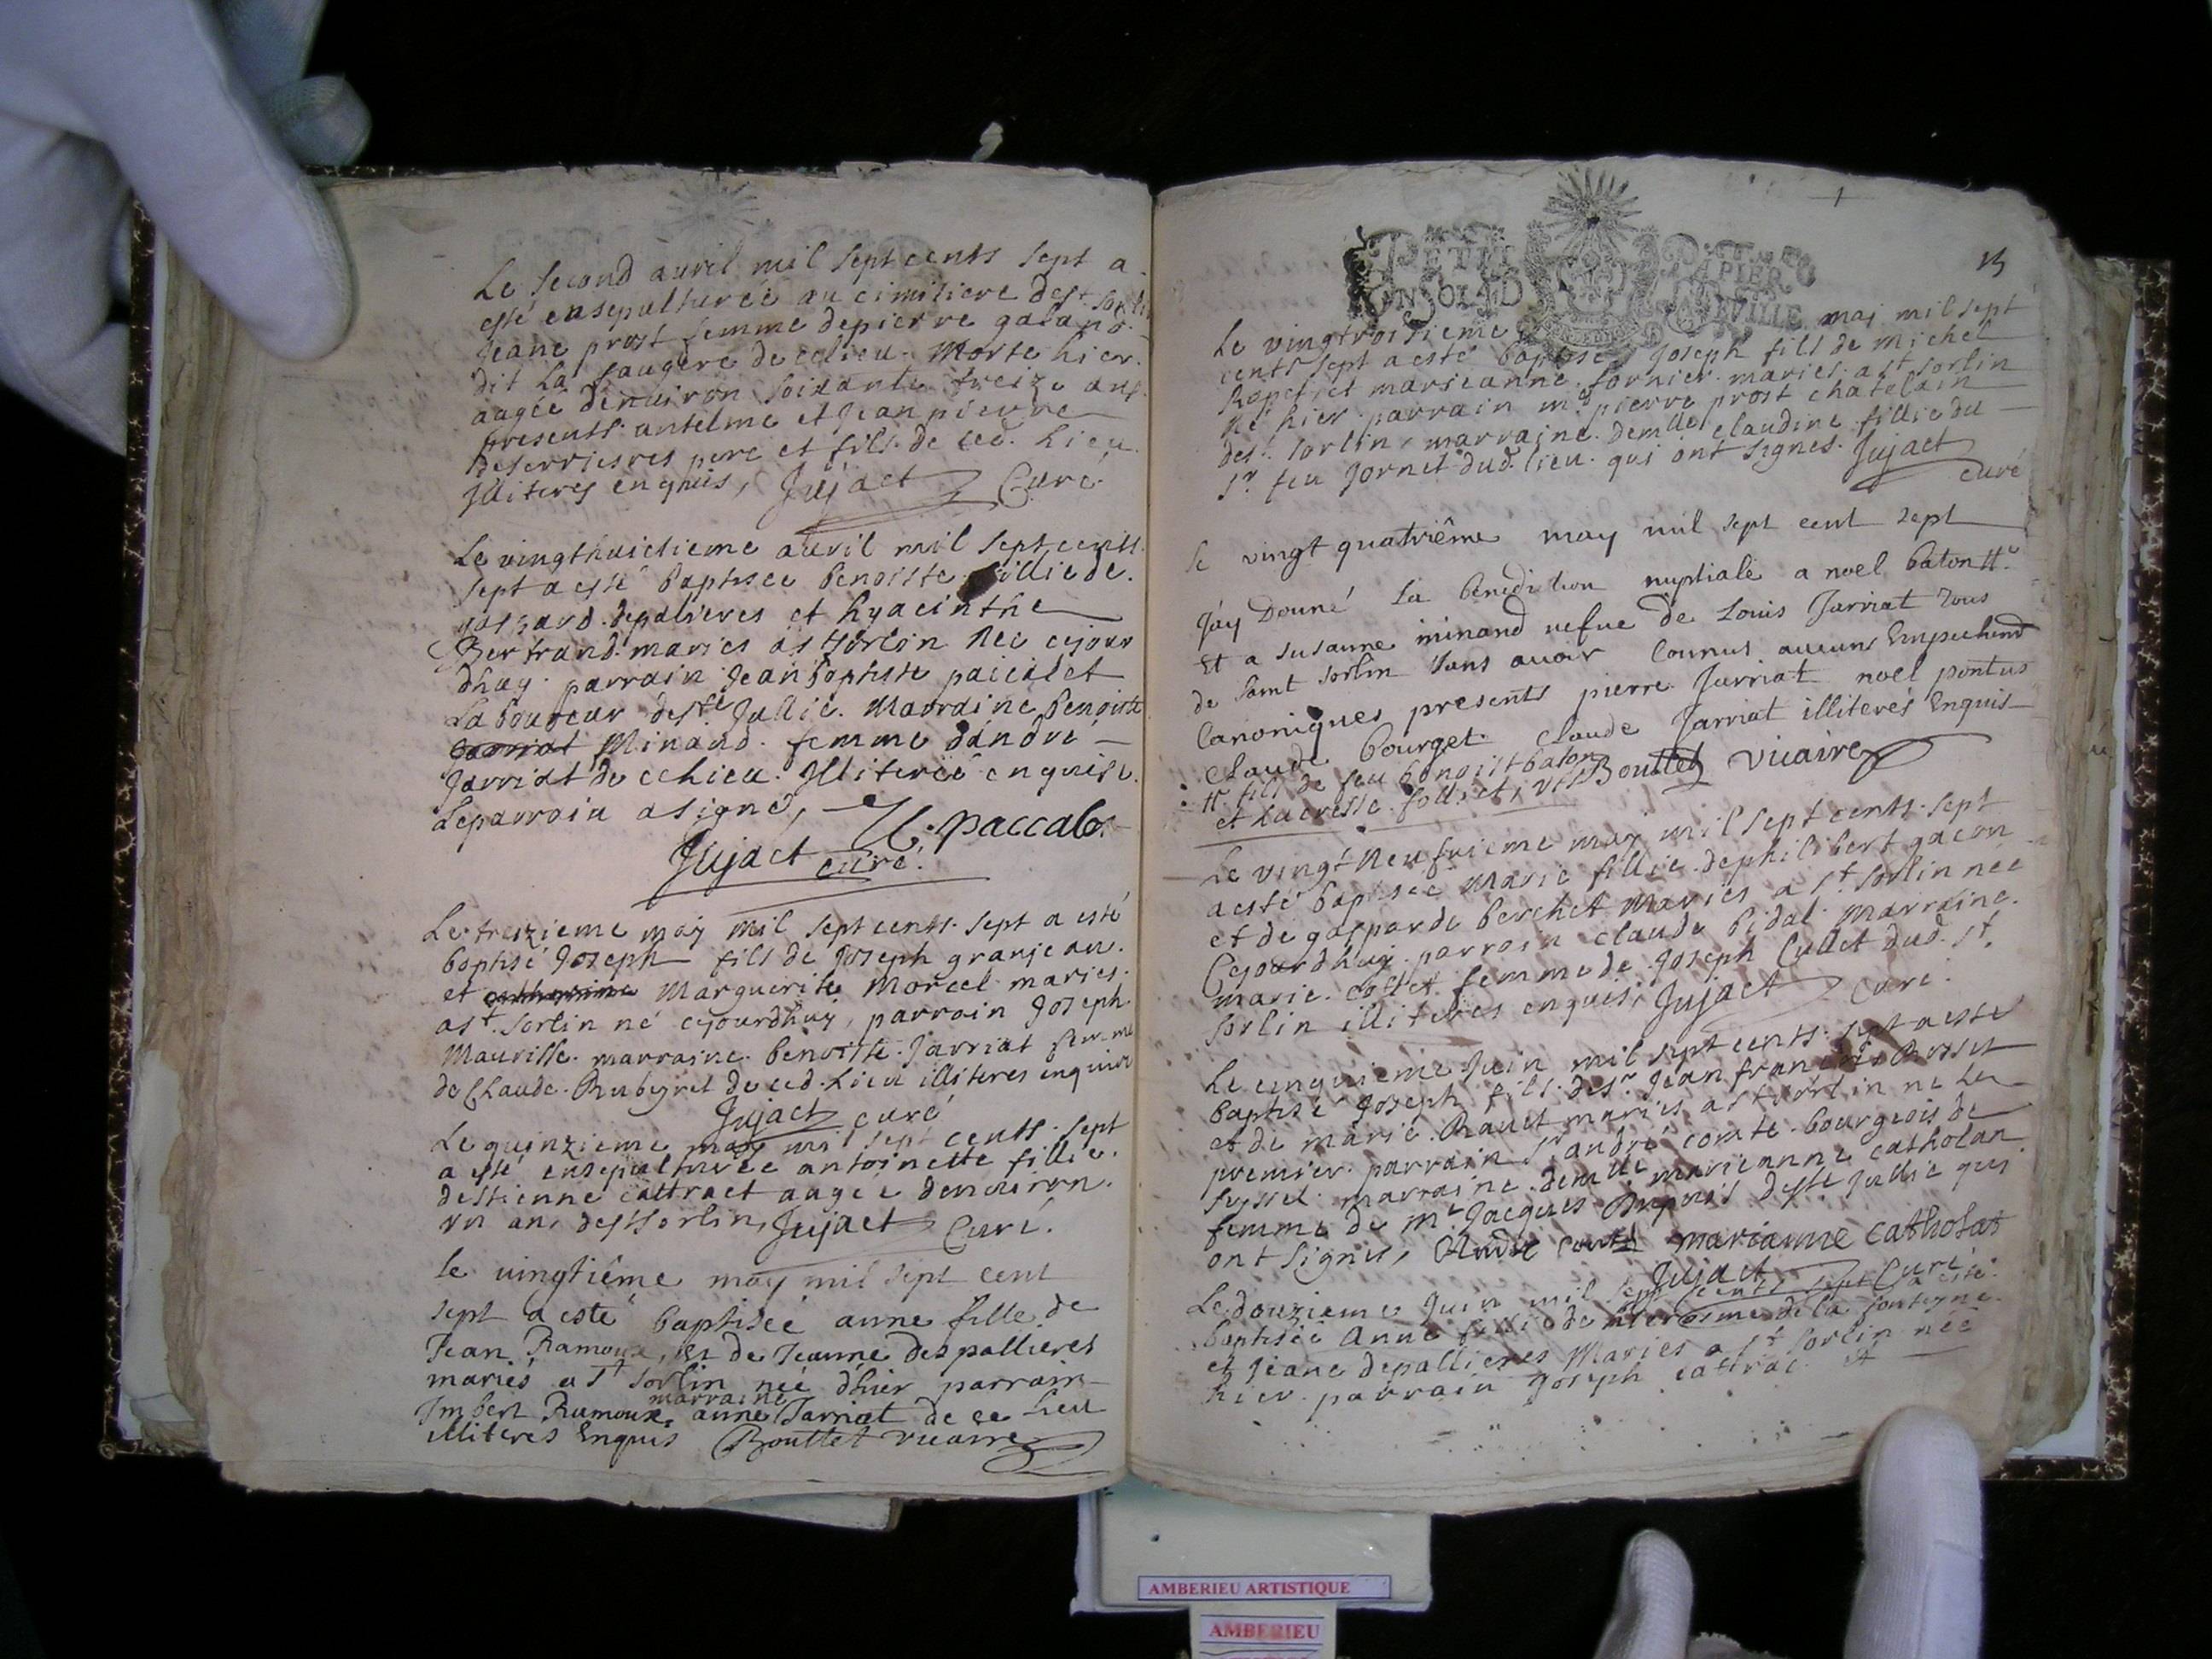 Le second avril mil sept cents sept a
esté ensepulturée au cimitiere de st. sorlin
Jeane prost femme de pierre galand
dit la faugere de celieu. Morte hier.
aagée denuiron soixante treize ans
presents antelme et Jean pierre
deserriesres pere et fils de ced. Lieu
Illiteres enquis, Jujact Curé.
Le vingthuictieme auril mil sept cents
sept a esté baptisée benoiste fillie de
gaspard depalieres et hyacinthe
Bertrand maries a st sorlin née cejour
dhuy. parrain Jean baptiste paccalet
Laboureur de ste Jullie. Marraine benoiste
Minand. femme dándré
Jarriat de celieu. Illiterée enquise.
Leparrain a signé,
Jujact curé.
Le treizieme may mil sept cents sept a esté
baptisé Joseph fils de Joseph granjean.
et Marguerite Morcel maries
a st. sorlin né cejourdhuy, parrain Joseph
Mauville. marraine benoiste Jarriat femme
de Claude Rubeyret de ced. Lieu illiteres enquis
Jujact curé
Le quinzieme may mil sept cents sept
a esté ensepulturée antoinette fillie
destienne cattract aagée denuiron
vn an, de st sorlin, Jujact Curé.
le vingtiême may mil sept cent
sept a esté baptiseé anne fille de
Jean Ramoux, et de Jeanne des pallieres
mariés a St sorlin neé d'hier parrain
Imbert Ramoux, marraine anne Jarriat de ce lieu
illiteres Enquis Bouttet vicaire
PETIT PAPIER
13
Le vingtroisieme may mil sept
cents sept a esté baptisé Joseph fils de Michel
et marieanne fornier maries a st sorlin
né hier. parrain md. pierre prost chatelain
de st. sorlin, marraine. demlle claudine fillie du
sr. feu Jornet dud. lieu qui ont signes. Jujact
curé
le vingt quatriême may mil sept cent sept
J'ay Donné la benediction nuptiale a noel baton #
Et a susanne minand vefve de Louis Jarriat tous
de saint sorlin sans avoir Connus aucuns Empechemt
Canoniques presents pierre Jarriat noel pontus
Claude bourget claude Jarriat illiterés Enquis
# fils de feu benoist baton Bouttet vicaire
Le vingt neufuieme may mil sept cents sept
a esté baptisée Marie fillie de philibert gacon
et de gasparde berchet Maries a st sorlin née
Cejourdhuy. parrain claude bidal. Marraine.
marie. femme de Joseph Cullet dud. st.
sorlin illiteres enquis, Jujact curé.
Le cinquieme Juin mil sept cents sept a esté
baptisé Joseph fils de sr. Jean francois Rosset
et de marie. Rauet maries a st sorlin né le
premier. parrain sr andré comte bourgeois de
seyssel. marraine. demlle marieanne catholan
femme de mr. Jacques Dupuis de ste Jullie qui
ont signes, marianne catholan
Jujact Curé
Le douzieme Juin mil sept cents sept a esté
baptisée Anne fillie de hierosme de la
et Jeane depallieres Maries a st sorlin née
hier. parrain Joseph cattrac. et
AMBERIEU ARTISTIQUE
AMBERIEU